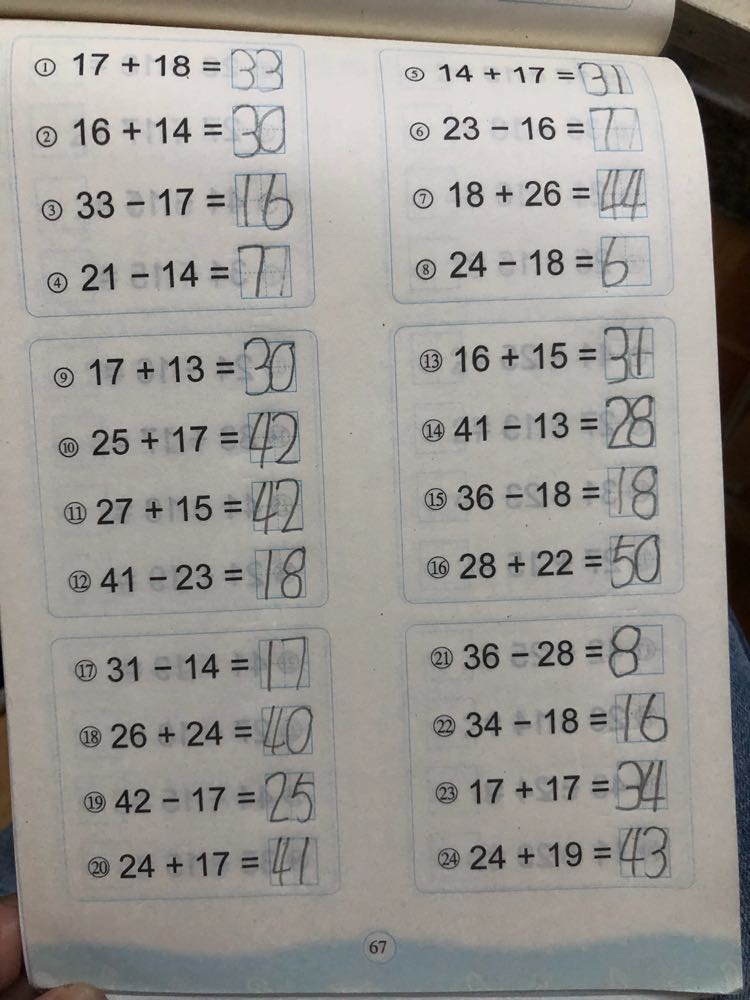 ① 17 + 18 = 33
② 16 + 14 = 30
③ 33 − 17 = 16
④ 21 − 14 = 7
⑤ 14 + 17 = 31
⑥ 23 − 16 = 7
⑦ 18 + 26 = 44
⑧ 24 − 18 = 6
⑨ 17 + 13 = 30
⑩ 25 + 17 = 42
⑪ 27 + 15 = 42
⑫ 41 − 23 = 18
⑬ 16 + 15 = 31
⑭ 41 − 13 = 28
⑮ 36 − 18 = 18
⑯ 28 + 22 = 50
⑰ 31 − 14 = 17
⑱ 26 + 24 = 40
⑲ 42 − 17 = 25
⑳ 24 + 17 = 41
㉑ 36 − 28 = 8
㉒ 34 − 18 = 16
㉓ 17 + 17 = 34
㉔ 24 + 19 = 43
67